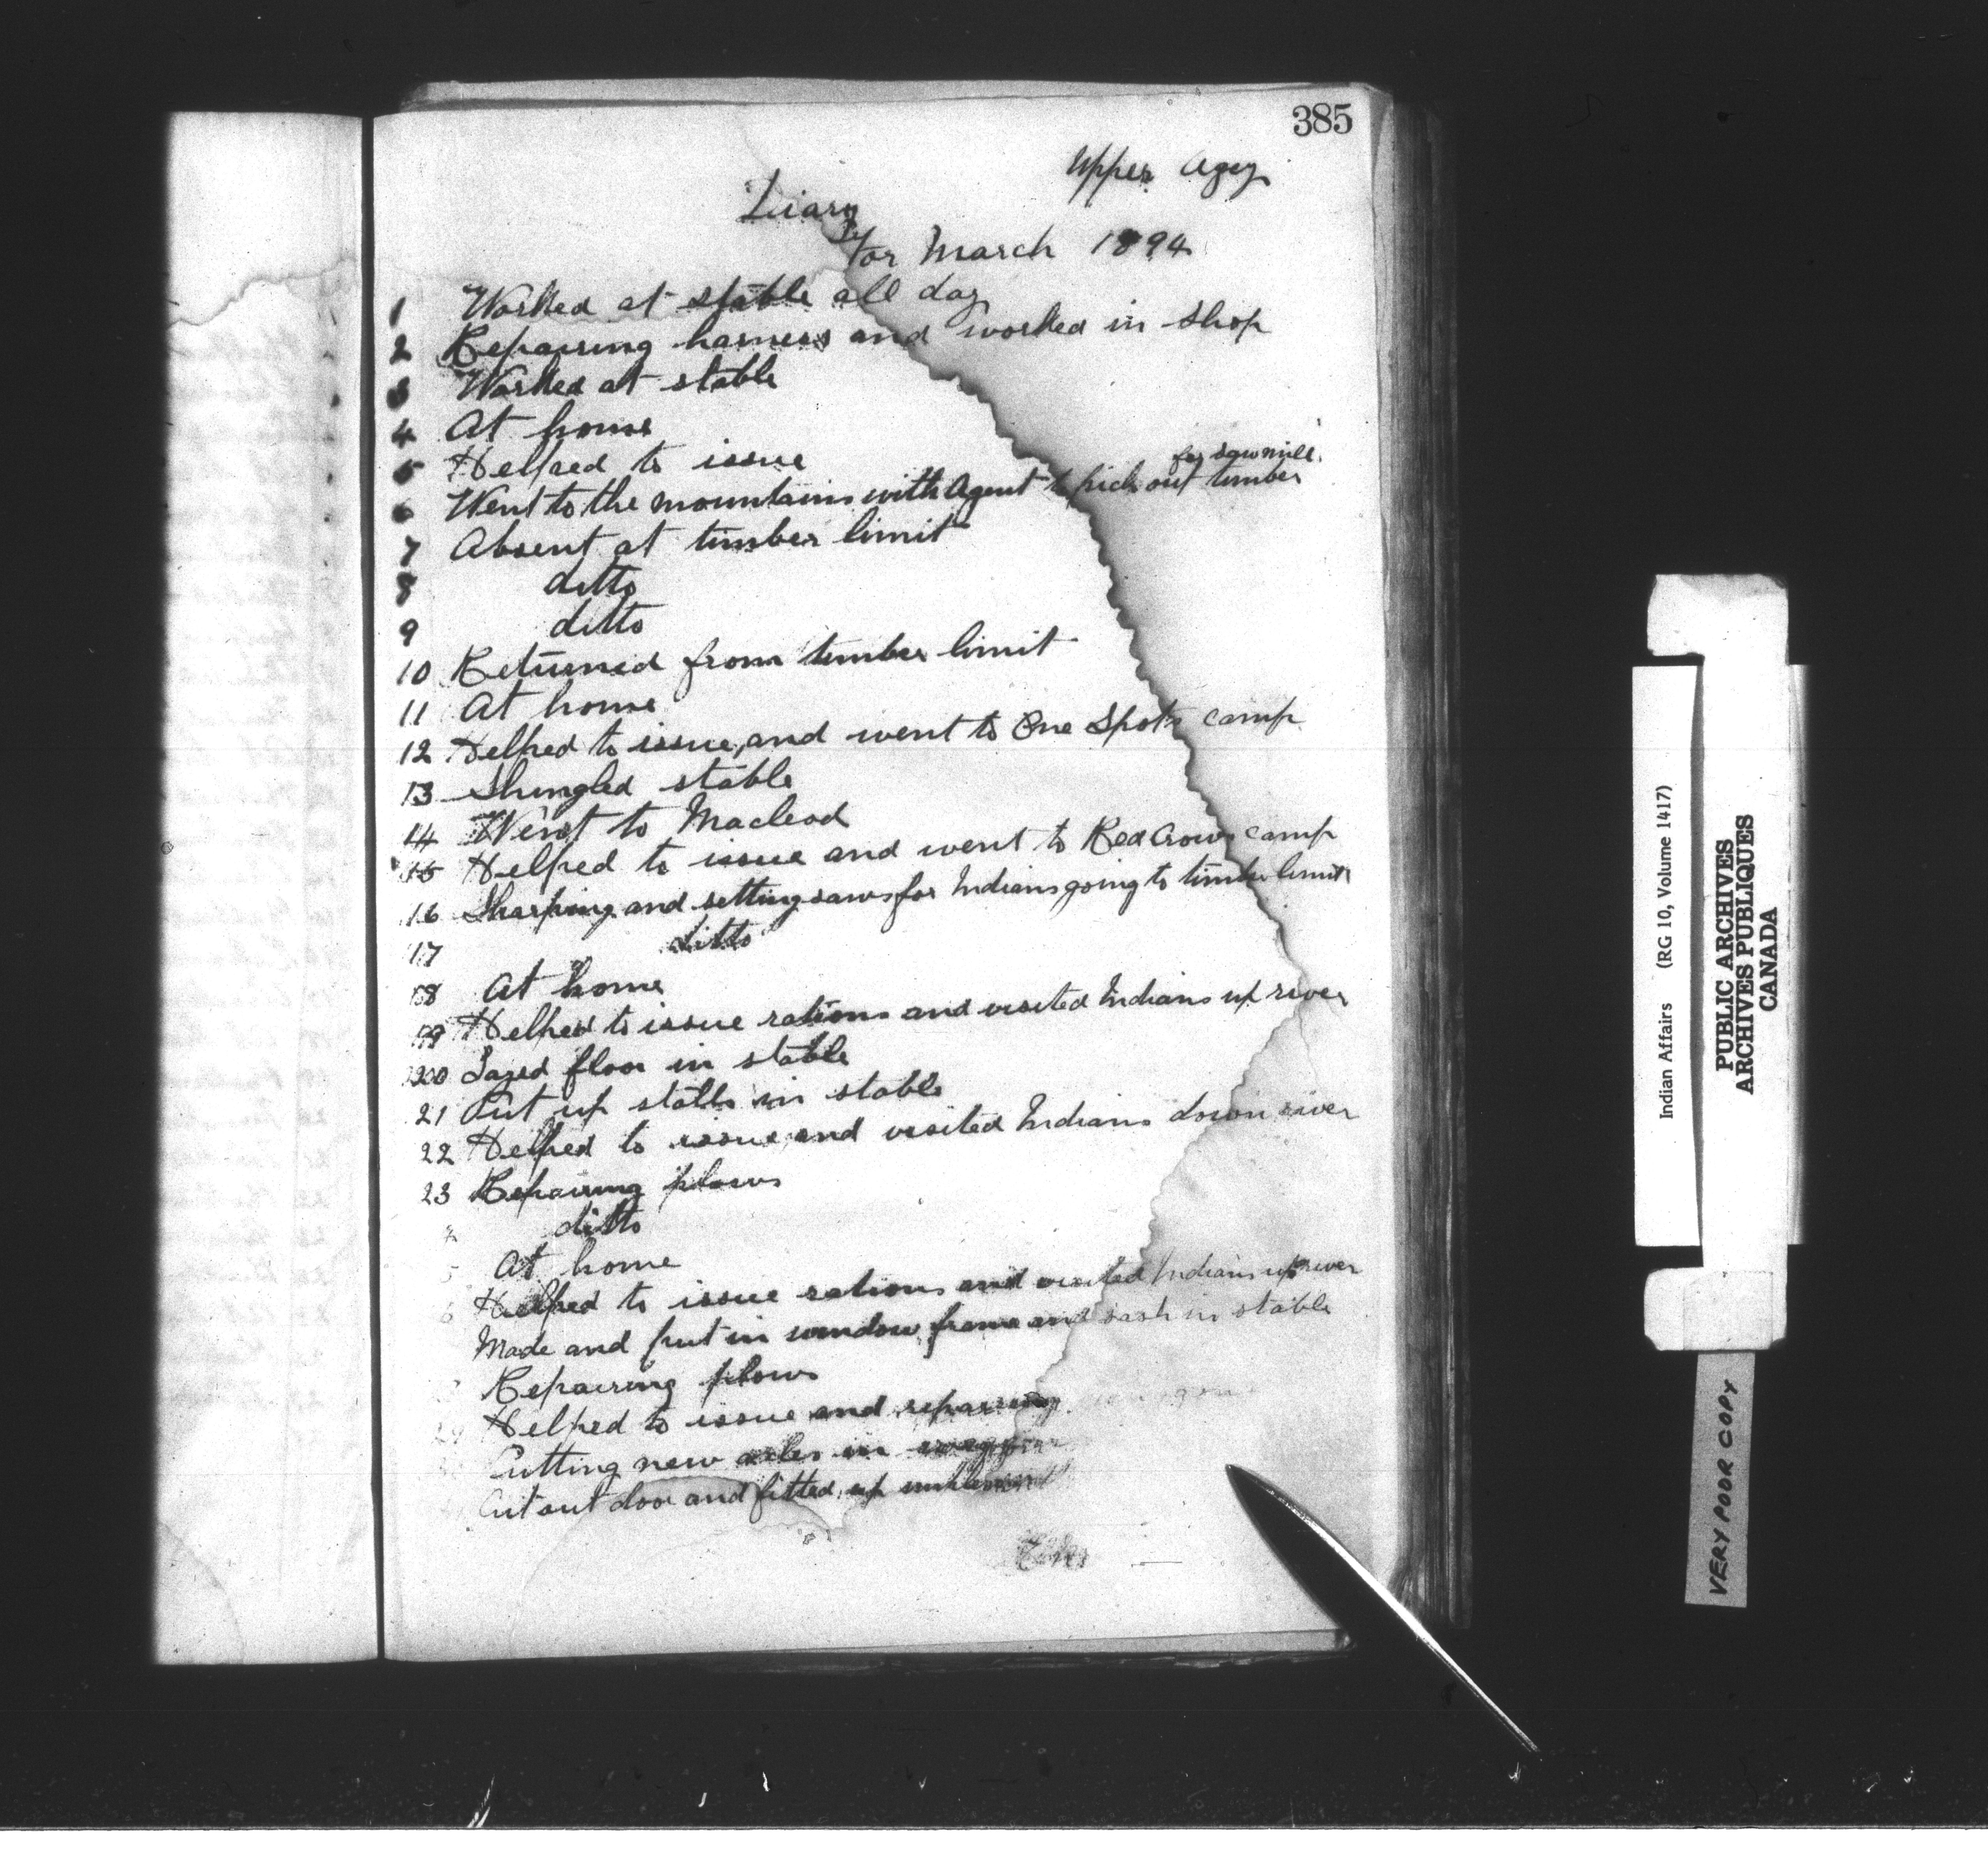 385
Upper Agcy
Diary
for March 1894
1 Worked at stable all day
2 Repairing harness and worked in shop
3 Worked at stable
4 At home
5 Helped to issue
for sawmill.
6 Went to the mountains with Agent to pick out timber
7 Absent at timber limit
8 ditto
9 ditto
10 Returned from timber limit
11 At home
12 Helped to issue, and went to One Spots camp
13 Shingled stable
14 Went to Macleod
15 Helped to issue and went to Red Crows camp
16 Sharping and setting saws for Indians going to timber limit
17 ditto
18 At home
19 Helped to issue rations and visited Indians up river
20 Layed floor in stable
21 Put up stalls in stable
22 Helped to issue and visited Indians down river
23 Repairing plows
ditto
5 At home
6 Helped to issue rations and visited Indians up river
Made and put in window frame and sash in stable
Repairing plows
29 Helped to issue and repairing
Putting new axles in
Cut out door and fitted up
Indian Affairs (RG 10, Volume 1417)
PUBLIC ARCHIVES
ARCHIVES PUBLIQUES
CANADA
VERY POOR COPY